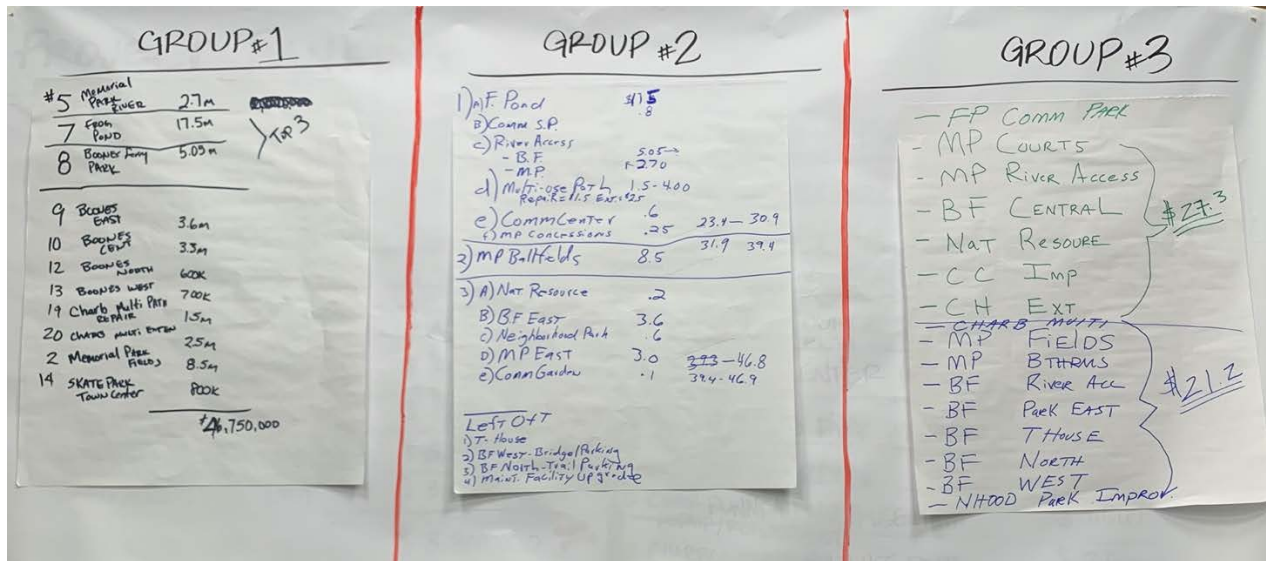 GROUP #1
#5 Memorial PARK RIVER 2.7M
7 FROG POND 17.5M
TOP 3
8 BOONES Ferry PARK 5.05M
9 BOONES EAST 3.6M
10 BOONES CENT 3.5M
12 BOONES NORTH 600K
13 BOONES WEST 700K
19 Charb Multi PATH REPAIR 1.5M
20 CHARB MULTI EXTEN 2.5M
2 Memorial PARK FIELDS 8.5M
14 SKATE PARK Town Center 800K
$46,750,000
GROUP #2
1) A) F. Pond $17.5
B) Comm S.P. .8
c) River Access
- B.F. 5.05
- M.P. 2.70
d) Multi-use Path 1.5 - 4.00
Repair = $1.5 Ext. $25
e) Comm Center .6
f) MP Concessions .25 23.4 - 30.9
31.9 39.4
2) MP Ballfields 8.5
3) A) Nat Resource .2
B) B.F East 3.6
c) Neighborhood Park .6
D) MP East 3.0 - 46.8
e) Comm Garden .1 39.4 - 46.9
Left Off
1) T-House
2) BF West - Bridge/Parking
3) BF North - Trail Parking
4) Maint. Facility Upgrade
GROUP #3
- FP COMM PARK
- MP COURTS
- MP RIVER ACCESS
- BF CENTRAL
$27.3
- NAT RESOURE
- CC IMP
- CH EXT
- CHARB MULTI
- MP FIELDS
- MP BTHRMS
- BF RIVER ACC
$21.2
- BF PARK EAST
- BF THOUSE
- BF NORTH
- BF WEST
- NHOOD PARK IMPROV